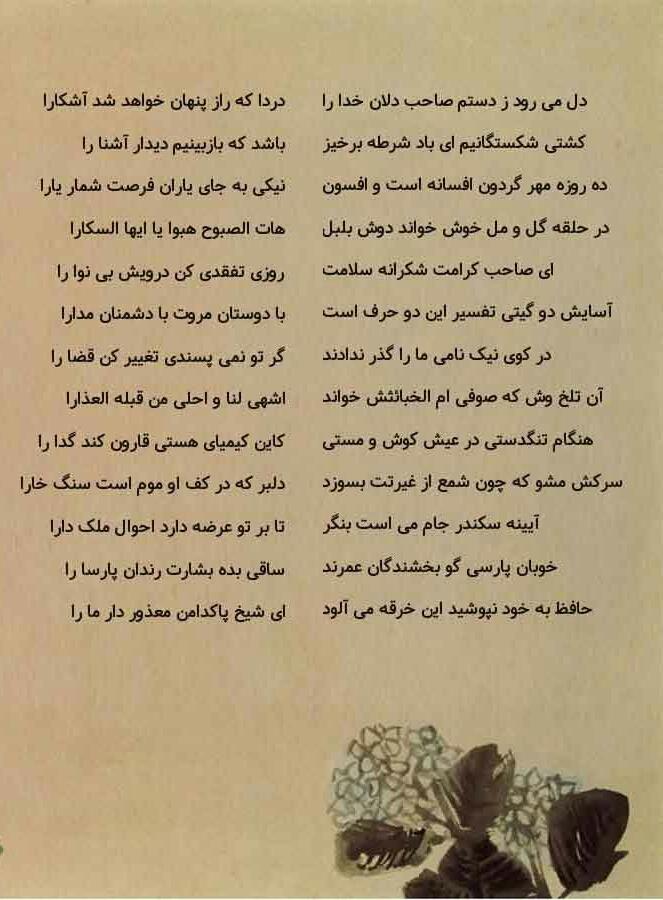 دل می رود ز دستم صاحب دلان خدا را دردا که راز پنهان خواهد شد آشکارا
کشتی شکستگانیم ای باد شرطه برخیز باشد که بازبینیم دیدار آشنا را
ده روزه مهر گردون افسانه است و افسون نیکی به جای یاران فرصت شمار یارا
در حلقه گل و مل خوش خواند دوش بلبل هات الصبوح هبوا یا ایها السکارا
ای صاحب کرامت شکرانه سلامت روزی تفقدی کن درویش بی نوا را
آسایش دو گیتی تفسیر این دو حرف است با دوستان مروت با دشمنان مدارا
در کوی نیک نامی ما را گذر ندادند گر تو نمی پسندی تغییر کن قضا را
آن تلخ وش که صوفی ام الخبائثش خواند اشهی لنا و احلی من قبله العذارا
هنگام تنگدستی در عیش کوش و مستی کاین کیمیای هستی قارون کند گدا را
سرکش مشو که چون شمع از غیرتت بسوزد دلبر که در کف او موم است سنگ خارا
آیینه سکندر جام می است بنگر تا بر تو عرضه دارد احوال ملک دارا
خوبان پارسی گو بخشندگان عمرند ساقی بده بشارت رندان پارسا را
حافظ به خود نپوشید این خرقه می آلود ای شیخ پاکدامن معذور دار ما را